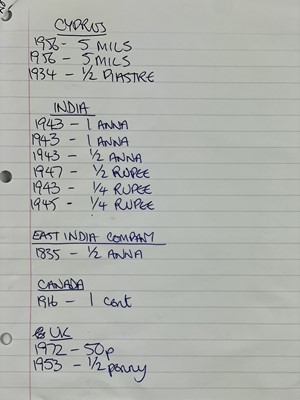 CYPRUS
1956 - 5 MILS
1956 - 5 MILS
1934 - ½ PIASTRE
INDIA
1943 - 1 ANNA
1943 - 1 ANNA
1943 - ½ ANNA
1947 - ½ RUPEE
1943 - ¼ RUPEE
1945 - ¼ RUPEE
EAST INDIA COMPANY
1835 - ½ ANNA
CANADA
1916 - 1 Cent
UK
1972 - 50p
1953 - ½ penny